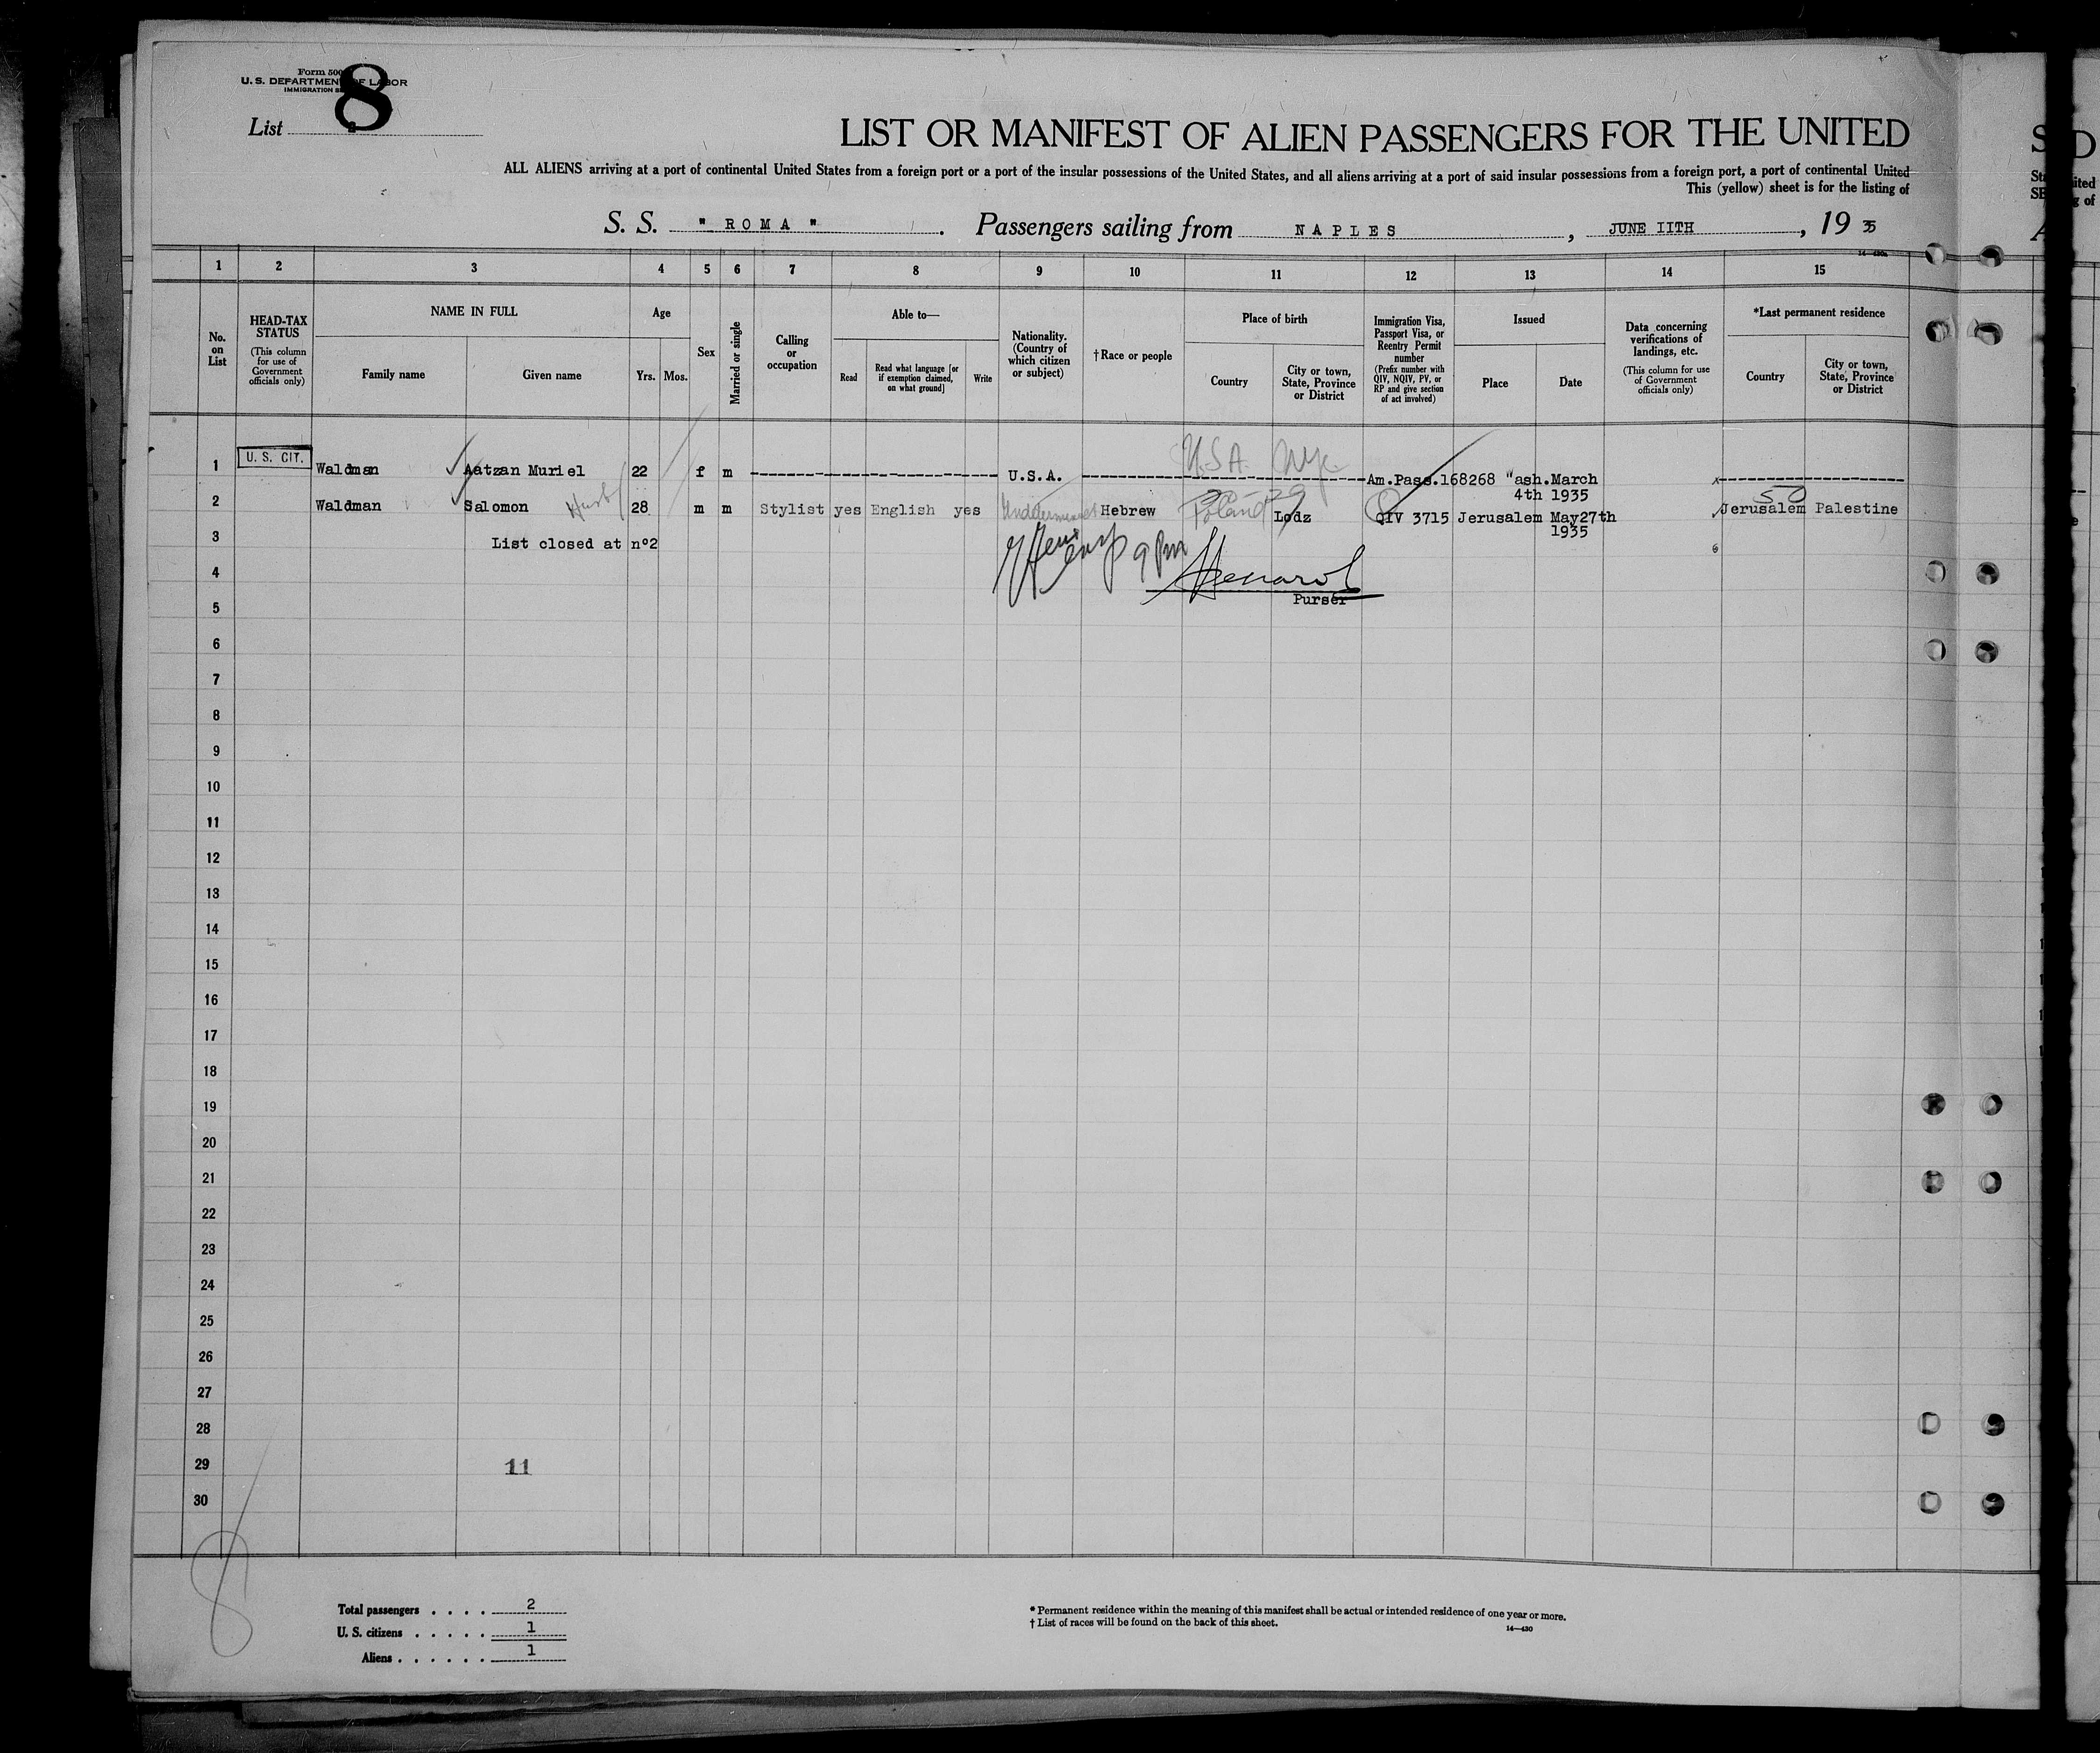 Form 500
U. S. DEPARTMENT OF LABOR
IMMIGRATION
8
List
LIST OR MANIFEST OF ALIEN PASSENGERS FOR THE UNITED
ALL ALIENS arriving at a port of continental United States from a foreign port or a port of the insular possessions of the United States, and all aliens arriving at a port of said insular possessions from a foreign port, a port of continental United
This (yellow) sheet is for the listing of
S. S. " ROMA ". Passengers sailing from NAPLES, JUNE IITH, 19 35
1 2 3 4 5 6 7 8 9 10 11 12 13 14 15
No. on List
HEAD-TAX STATUS
(This column for use of Government officials only)
NAME IN FULL
Family name
Given name
Age
Yrs.
Mos.
Sex
Married or single
Calling or occupation
Able to—
Read
Read what language [or if exemption claimed, on what ground]
Write
Nationality. (Country of which citizen or subject)
†Race or people
Place of birth
Country
City or town, State, Province or District
Immigration Visa, Passport Visa, or Reentry Permit number
(Prefix number with QIV, NQIV, PV, or RP and give section of act involved)
Issued
Place
Date
Data concerning verifications of landings, etc.
(This column for use of Government officials only)
*Last permanent residence
Country
City or town, State, Province or District
1 U. S. CIT. Waldman Aatzan Muriel 22 f m U.S.A. U.S.A. N.Y. Am.Pass.168268 "ash.March
4th 1935
2 Waldman Salomon Husb 28 m m Stylist yes English yes Hebrew Poland Lodz QIV 3715 Jerusalem May27th
1935
Jerusalem Palestine
3 List closed at nº2
4
Purser
5
6
7
8
9
10
11
12
13
14
15
16
17
18
19
20
21
22
23
24
25
26
27
28
29 11
30
8
Total passengers . . . . 2
U. S. citizens . . . . . 1
Aliens . . . . . . 1
* Permanent residence within the meaning of this manifest shall be actual or intended residence of one year or more.
† List of races will be found on the back of this sheet.
14—430